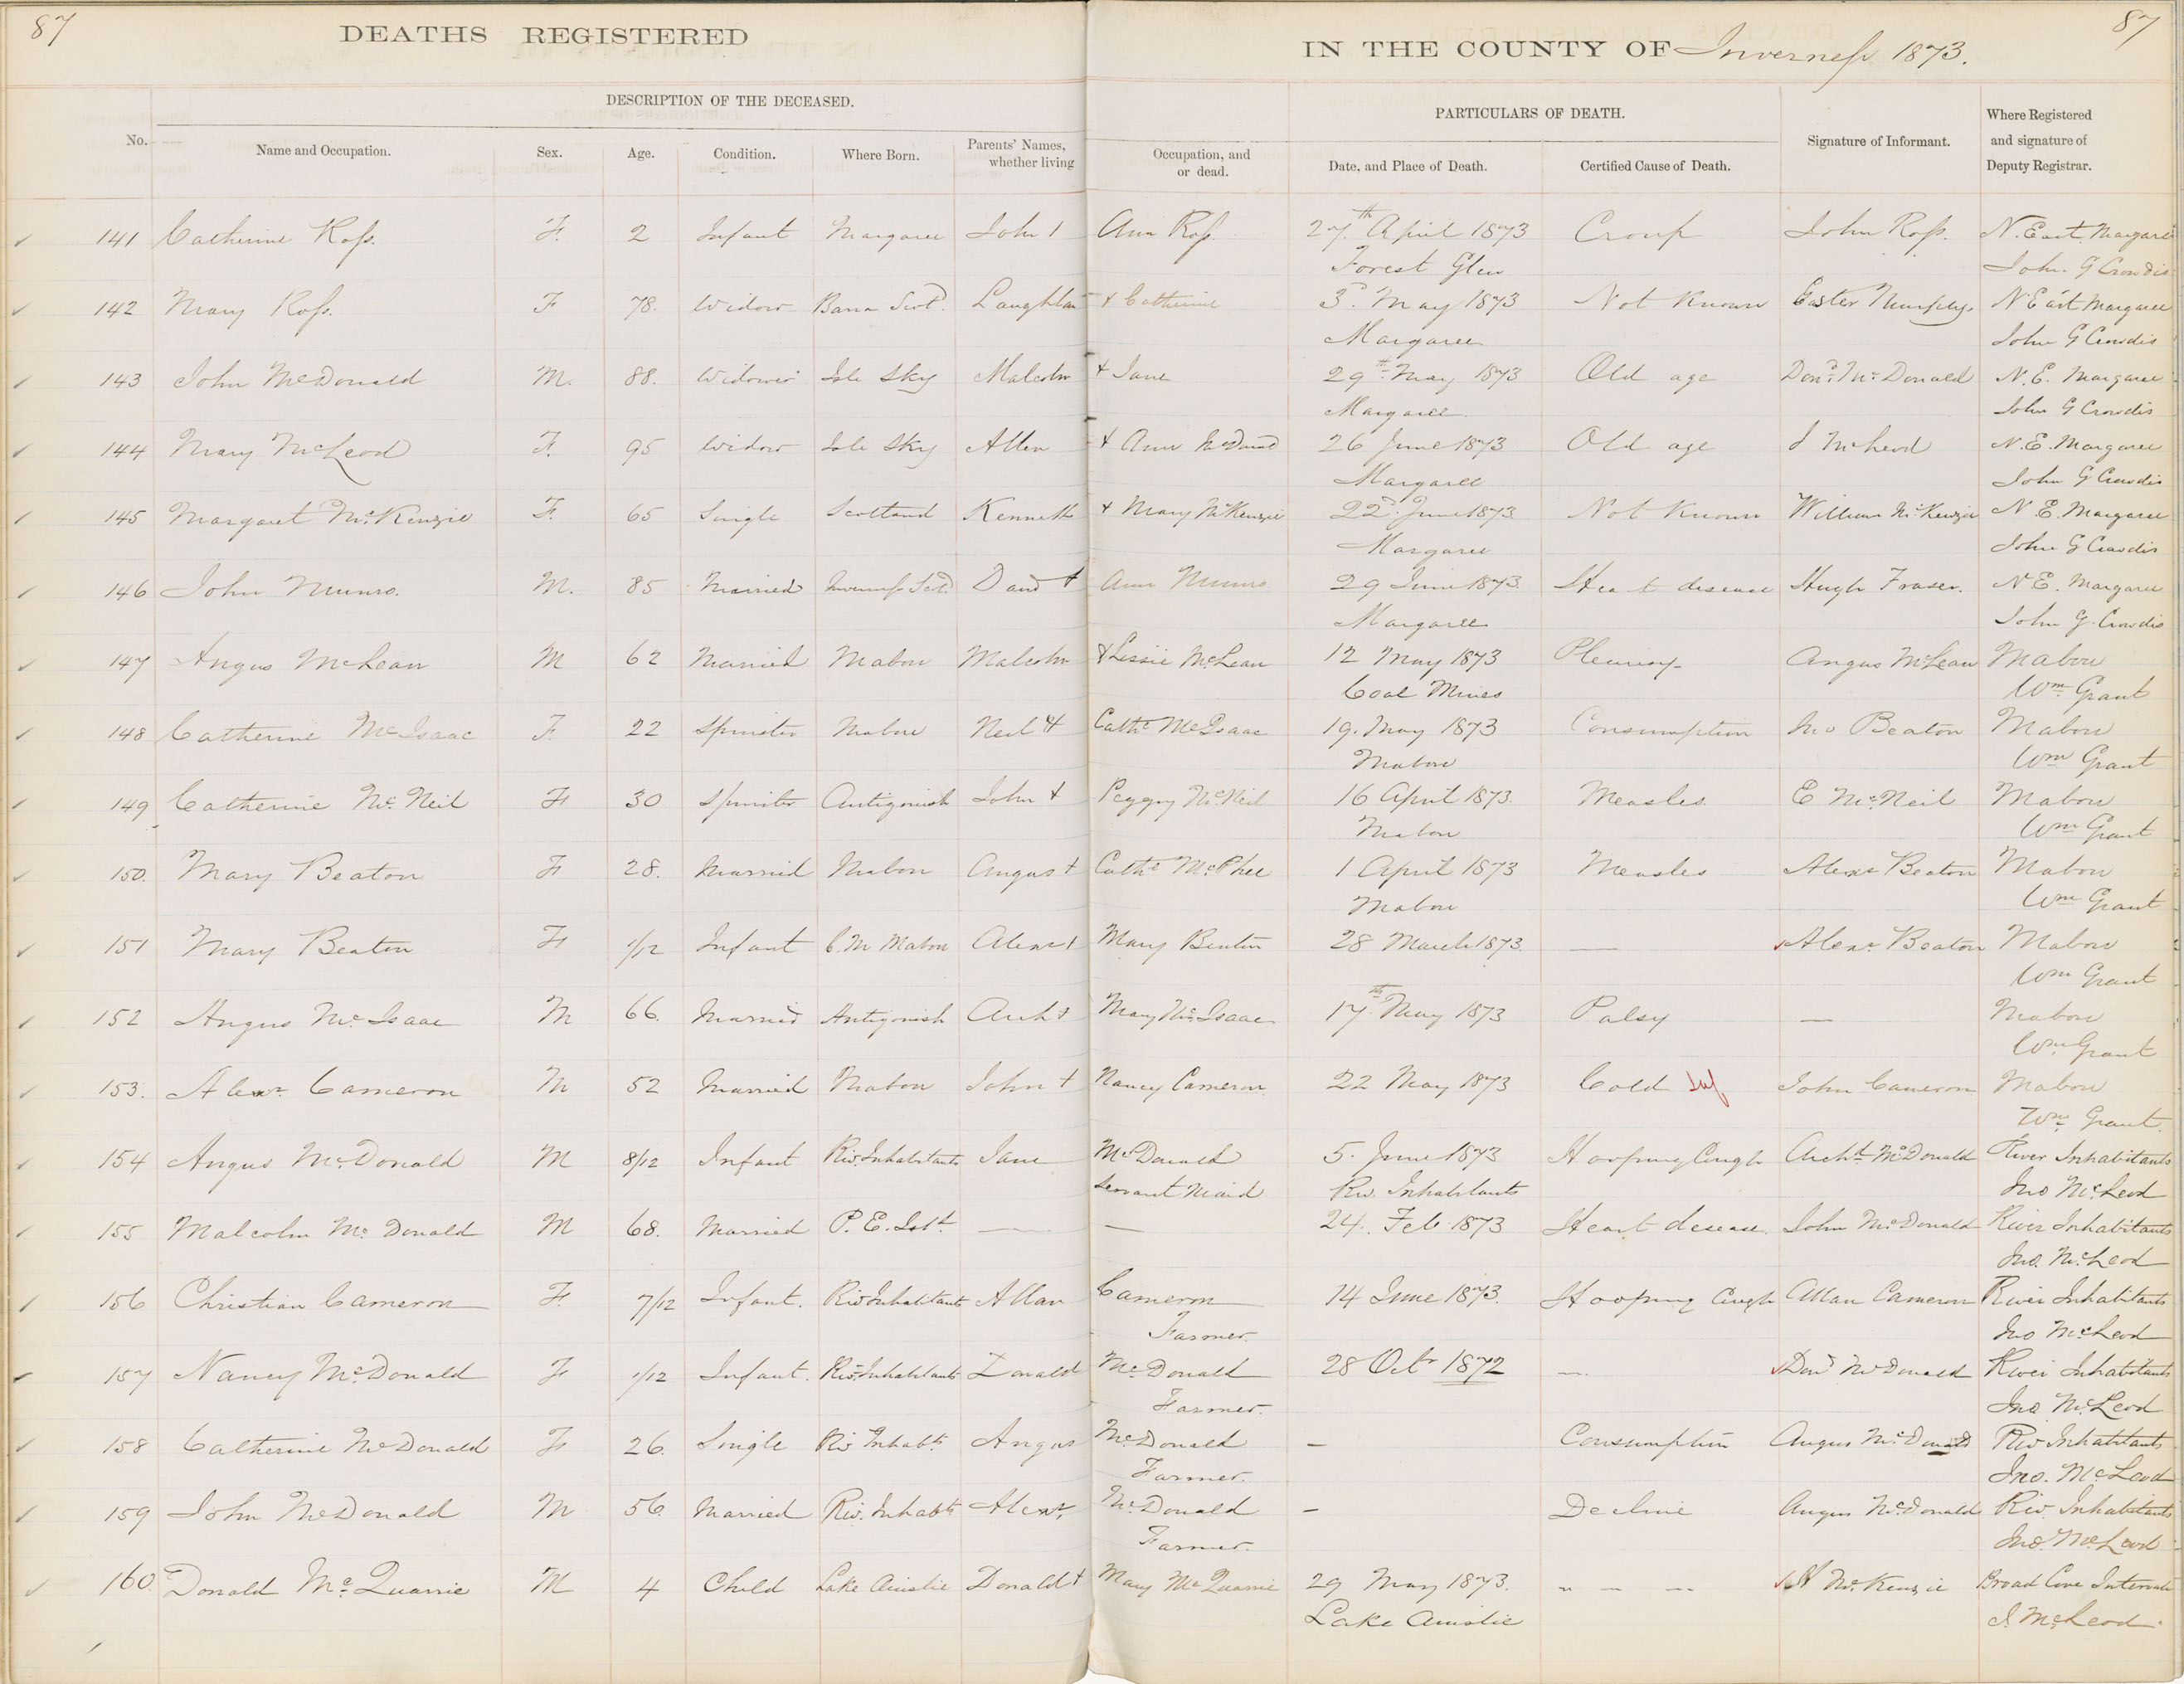 87
87
DEATHS REGISTERED IN THE COUNTY OF Inverness 1873.
DESCRIPTION OF THE DECEASED.
PARTICULARS OF DEATH.
No. Name and Occupation. Sex. Age. Condition. Where Born. Parents' Names, whether living Occupation, and or dead. Date, and Place of Death. Certified Cause of Death. Signature of Informant. Where Registered and signature of Deputy Registrar.
141 Catherine Ross. F. 2 Infant Margaree John & Ann Ross. 27th April 1873 Croup John Ross. N. East Margaree
Forest Glen John G Crowdis
142 Mary Ross. F 78. Widow Barra Scotd. Laughlan & Catherine 3d. May 1873 Not Known Easter Murphy. N East Margaree
Margaree John G Crowdis
143 John McDonald M. 88. Widower Isle Sky Malcolm & Jane 29th May 1873 Old age Dond. McDonald N.E. Margaree
Margaree. John G Crowdis
144 Mary McLeod F. 95 Widow Isle Sky Allen & Ann 26 June 1873 Old age J McLeod N.E. Margaree
Margaree John G Crowdis
145 Margaret McKenzie F. 65 Single Scotland Kenneth & Mary McKenzie 22d. June 1873 Not Known William McKenzie N.E. Margaree
Margaree John G Crowdis
146 John Munro. M. 85 Married Inverness Scotd. David & Ann Munro 29 June 1873. Heart disease Hugh Fraser. N.E. Margaree
Margaree John G. Crowdis
147 Angus McLean M 62 Married Mabou Malcolm & Lissie McLean 12 May 1873 Pleurisy Angus McLean Mabou
Coal Mines Wm Grant
148 Catherine McIsaac F. 22 Spinster Mabou Neil & Cathe McIsaac 19. May 1873 Consumption Jno Beaton Mabou
Mabou Wm Grant
149 Catherine McNeil F 30 Spinster Antigonish John & Peggy McNeil 16 April 1873. Measles. E McNeil Mabou
Mabou Wm Grant
150. Mary Beaton F 28. Married Mabou Angus & Cathe McPhee 1 April 1873 Measles Alexr Beaton Mabou
Mabou Wm Grant
151 Mary Beaton F 1/12 Infant C.M Mabou Alexr & Mary Beaton 28 March 1873. — Alexr Beaton Mabou
Wm Grant
152 Angus McIsaac M 66. Married Antigonish Arch & Mary McIsaac 17th May 1873 Palsy — Mabou
Wm Grant
153. Alexr Cameron M 52 Married Mabou John & Nancy Cameron. 22 May 1873 Cold John Cameron Mabou
Wm Grant.
154 Angus McDonald M 8/12 Infant Riv. Inhabitants Jane McDonald 5. June 1873 Hooping Cough Archd McDonald River Inhabitants
Servant Maid Riv. Inhabitants Jno McLeod
155 Malcolm McDonald M 68. Married P. E. Isld — — 24. Feb 1873 Heart desease. John McDonald River Inhabitants
Jno. McLeod
156 Christian Cameron F. 7/12 Infant. Riv Inhabitants Allan Cameron 14 June 1873. Hooping Cough Allan Cameron River Inhabitants
Farmer. Jno McLeod
157 Nancy McDonald F 1/12 Infant. Riv. Inhabitants Donald McDonald 28 Octr 1872 — Dond McDonald River Inhabitants
Farmer. Jno McLeod
158 Catherine McDonald F 26. Single Riv Inhabts Angus McDonald — Consumption Angus McDonald Riv Inhabitants
Farmer. Jno. McLeod
159 John McDonald M 56. Married Riv. Inhabts Alexr. McDonald — Decline Angus McDonald Riv. Inhabitants
Farmer. Jno. McLeod
160. Donald McQuarrie M 4 Child Lake Ainslie Donald & Mary McQuarrie 29 May 1873. — — — A McKenzie Broad Cove Intervale
Lake Ainslie J. McLeod.